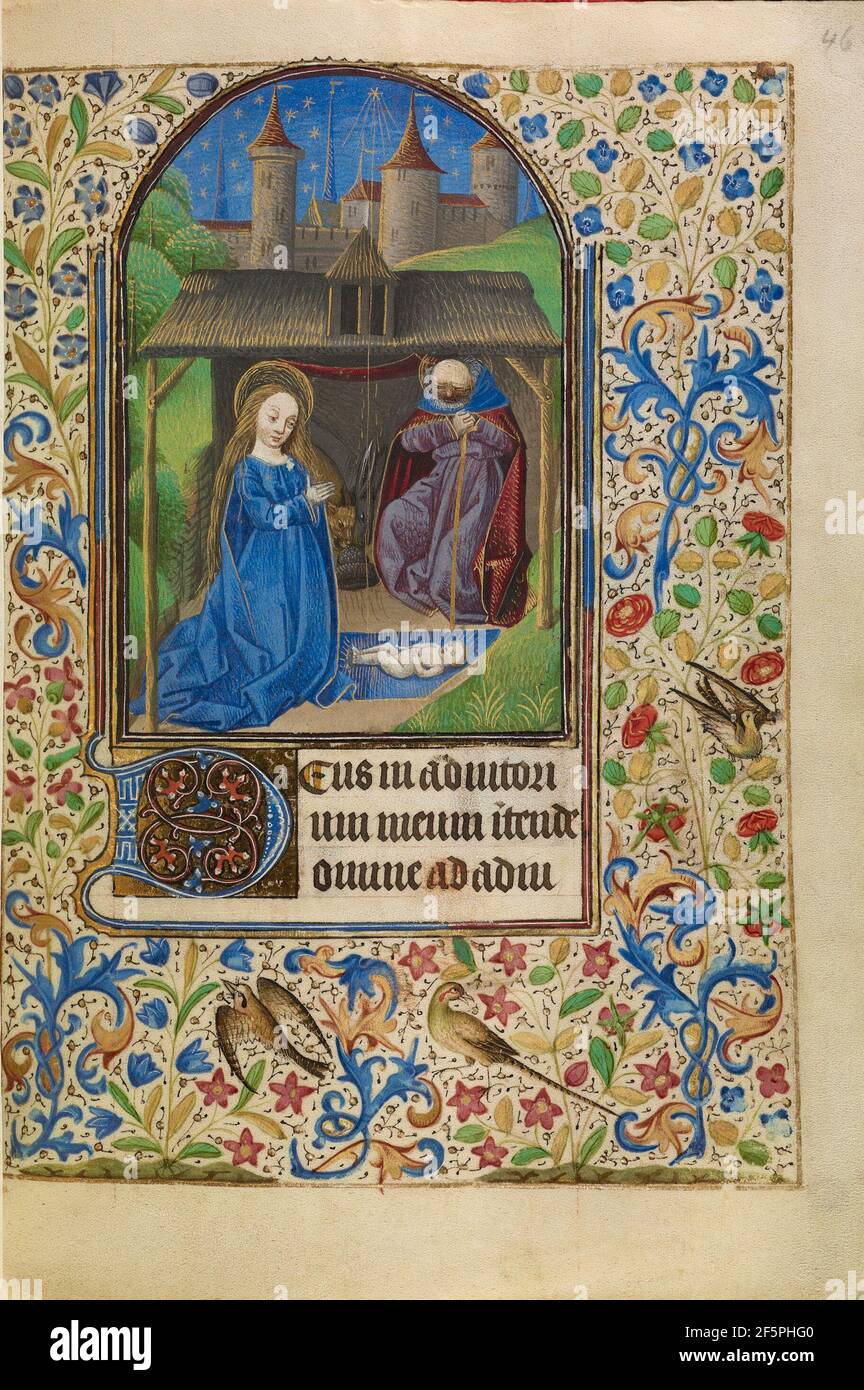 46
alamy
Deus in adiutori
um meum itende
domine ad adiu
alamy
Image ID: 2F5PHG0
www.alamy.com